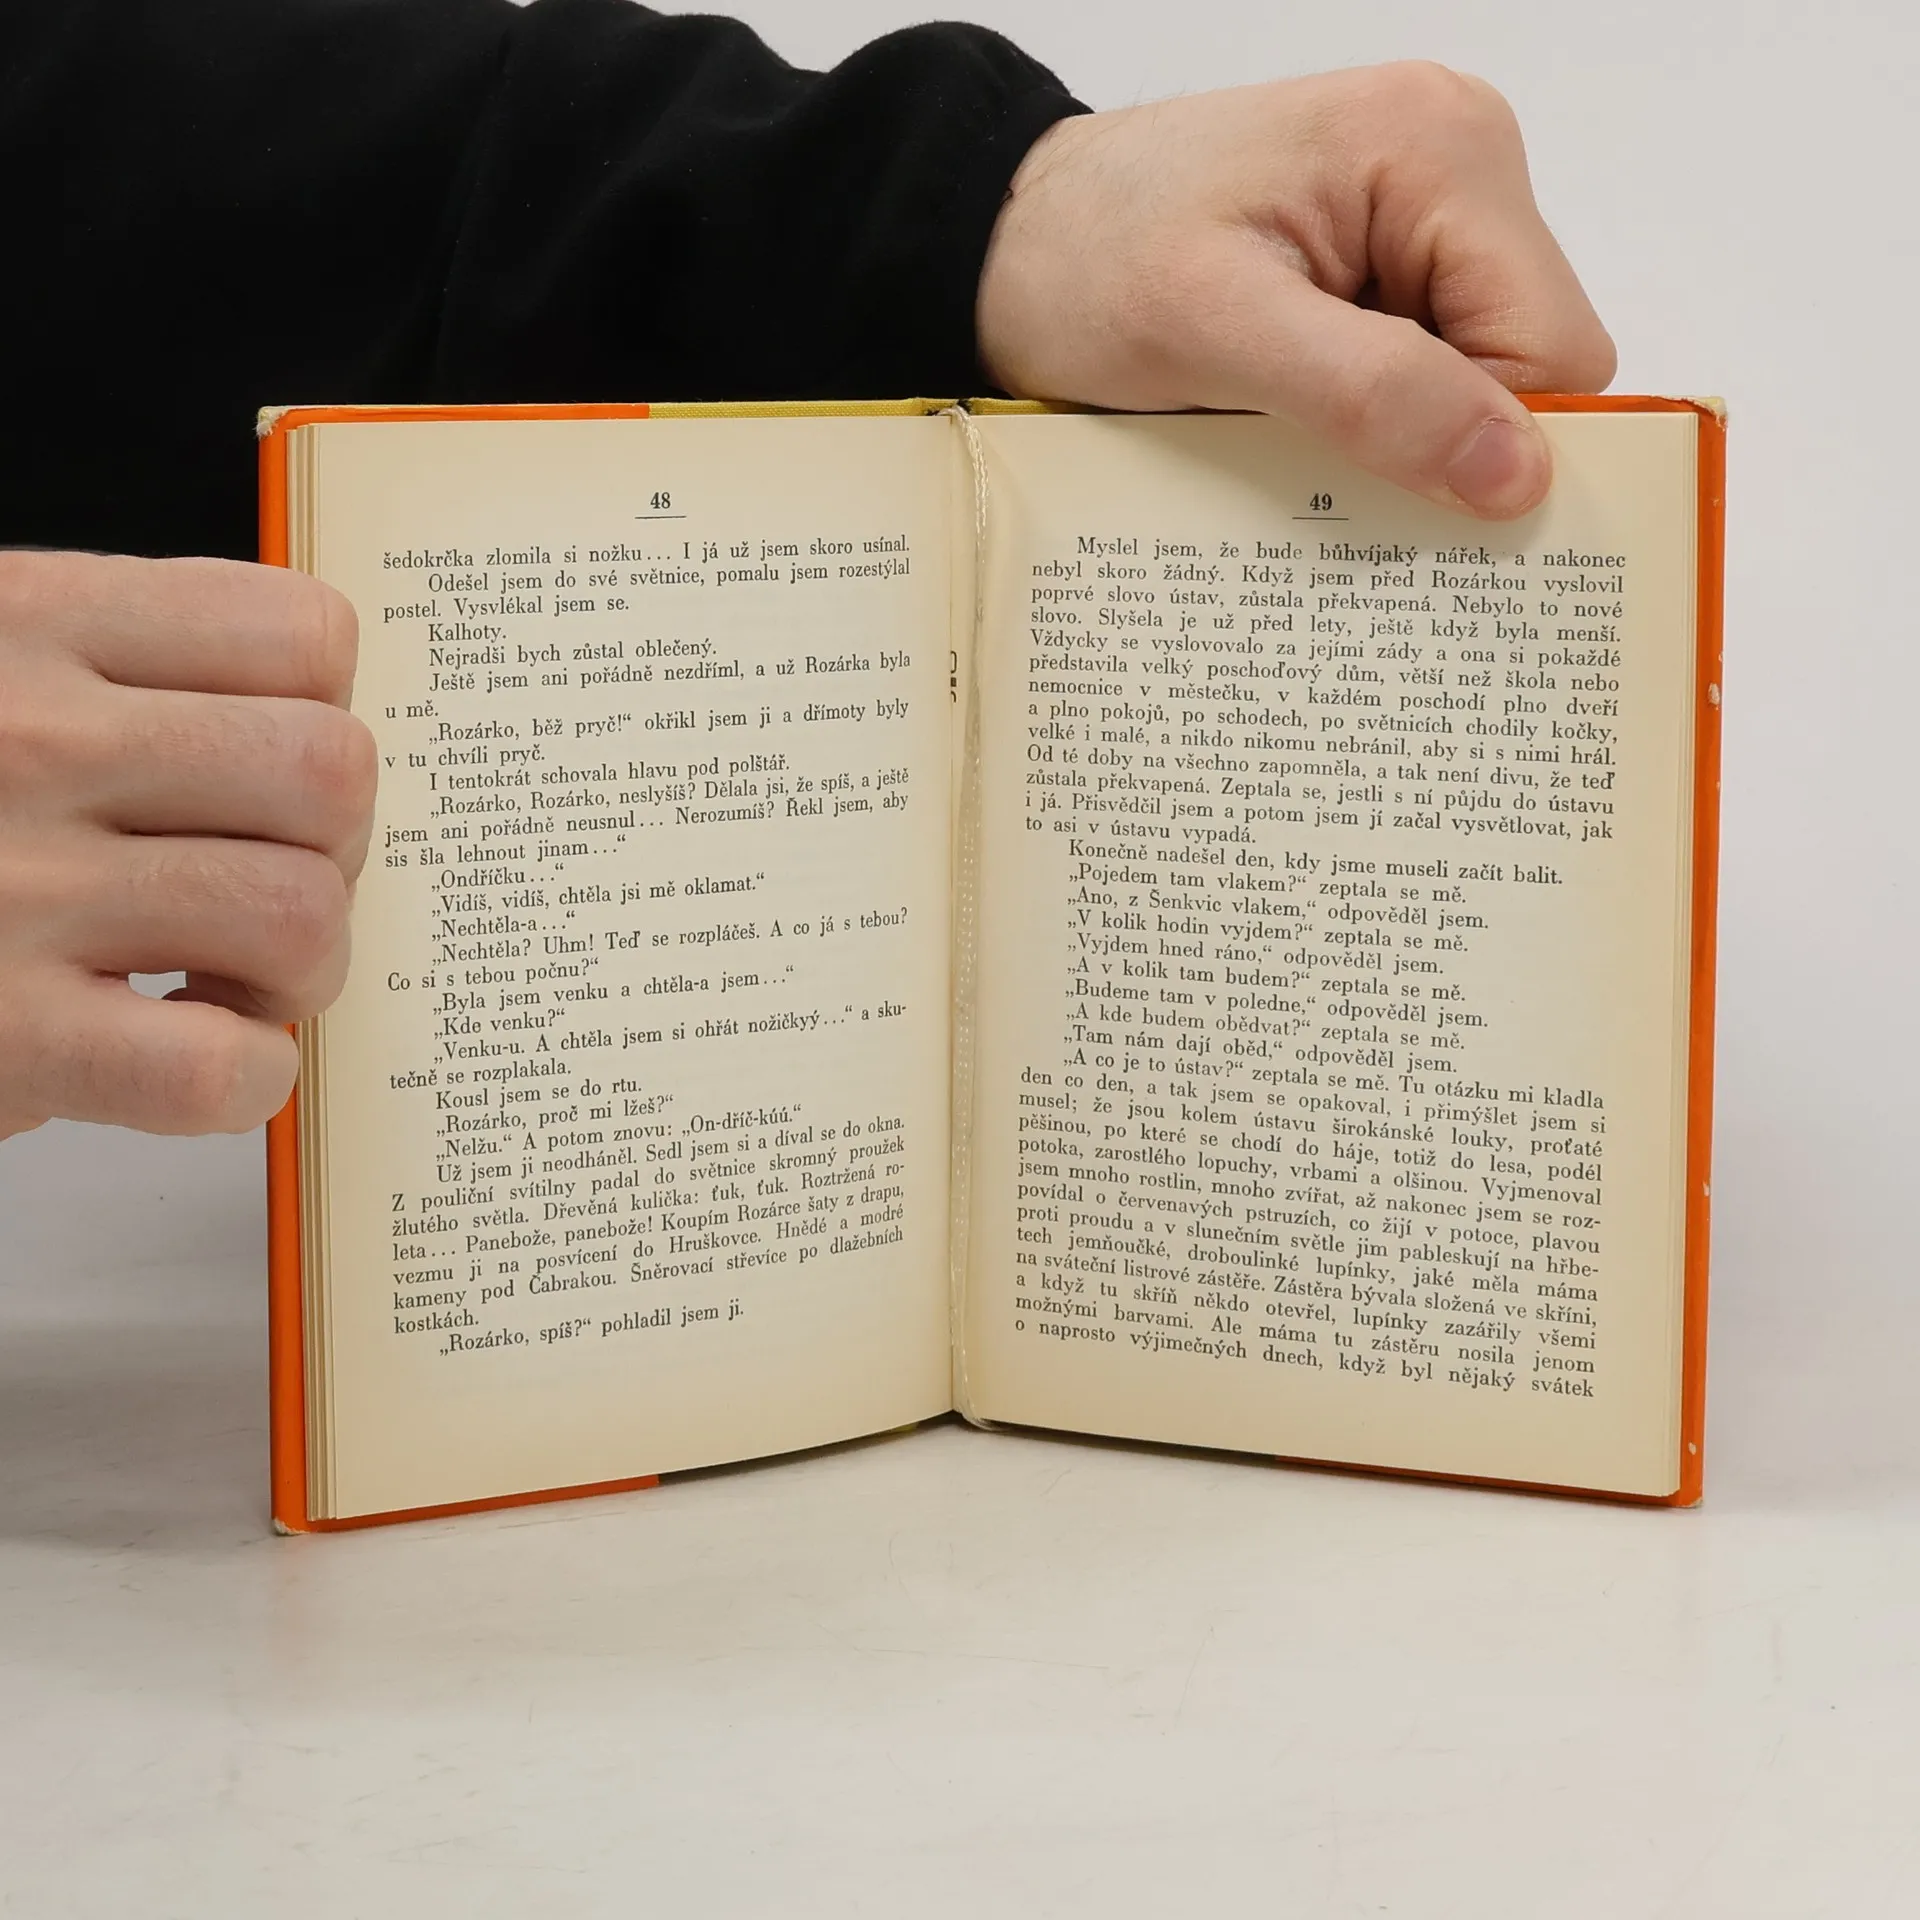 48
šedokrčka zlomila si nožku... I já už jsem skoro usínal.
Odešel jsem do své světnice, pomalu jsem rozestýlal
postel. Vysvlékal jsem se.
Kalhoty.
Nejradši bych zůstal oblečený.
Ještě jsem ani pořádně nezdříml, a už Rozárka byla
u mě.
„Rozárko, běž pryč!“ okřikl jsem ji a dřímoty byly
v tu chvíli pryč.
I tentokrát schovala hlavu pod polštář.
„Rozárko, Rozárko, neslyšíš? Dělala jsi, že spíš, a ještě
jsem ani pořádně neusnul... Nerozumíš? Řekl jsem, aby
sis šla lehnout jinam...“
„Ondříčku...“
„Vidíš, vidíš, chtěla jsi mě oklamat.“
„Nechtěla-a...“
„Nechtěla? Uhm! Teď se rozpláčeš. A co já s tebou?
Co si s tebou počnu?“
„Byla jsem venku a chtěla-a jsem...“
„Kde venku?“
„Venku-u. A chtěla jsem si ohřát nožičkyý...“ a sku-
tečně se rozplakala.
Kousl jsem se do rtu.
„Rozárko, proč mi lžeš?“
„Nelžu.“ A potom znovu: „On-dříč-kúú.“
Už jsem ji neodháněl. Sedl jsem si a díval se do okna.
Z pouliční svítilny padal do světnice skromný proužek
žlutého světla. Dřevěná kulička: ťuk, ťuk. Roztržená ro-
leta... Panebože, panebože! Koupím Rozárce šaty z drapu,
vezmu ji na posvícení do Hruškovce. Hnědé a modré
kameny pod Čabrakou. Šněrovací střevíce po dlažebních
kostkách.
„Rozárko, spíš?“ pohladil jsem ji.
49
Myslel jsem, že bude bůhvíjaký nářek, a nakonec
nebyl skoro žádný. Když jsem před Rozárkou vyslovil
poprvé slovo ústav, zůstala překvapená. Nebylo to nové
slovo. Slyšela je už před lety, ještě když byla menší.
Vždycky se vyslovovalo za jejími zády a ona si pokaždé
představila velký poschoďový dům, větší než škola nebo
nemocnice v městečku, v každém poschodí plno dveří
a plno pokojů, po schodech, po světnicích chodily kočky,
velké i malé, a nikdo nikomu nebránil, aby si s nimi hrál.
Od té doby na všechno zapomněla, a tak není divu, že teď
zůstala překvapená. Zeptala se, jestli s ní půjdu do ústavu
i já. Přisvědčil jsem a potom jsem jí začal vysvětlovat, jak
to asi v ústavu vypadá.
Konečně nadešel den, kdy jsme museli začít balit.
„Pojedem tam vlakem?“ zeptala se mě.
„Ano, z Šenkvic vlakem,“ odpověděl jsem.
„V kolik hodin vyjdem?“ zeptala se mě.
„Vyjdem hned ráno,“ odpověděl jsem.
„A v kolik tam budem?“ zeptala se mě.
„Budeme tam v poledne,“ odpověděl jsem.
„A kde budem obědvat?“ zeptala se mě.
„Tam nám dají oběd,“ odpověděl jsem.
„A co je to ústav?“ zeptala se mě. Tu otázku mi kladla
den co den, a tak jsem se opakoval, i přimýšlet jsem si
musel; že jsou kolem ústavu širokánské louky, proťaté
pěšinou, po které se chodí do háje, totiž do lesa, podél
potoka, zarostlého lopuchy, vrbami a olšinou. Vyjmenoval
jsem mnoho rostlin, mnoho zvířat, až nakonec jsem se roz-
povídal o červenavých pstruzích, co žijí v potoce, plavou
proti proudu a v slunečním světle jim pableskují na hřbe-
tech jemňoučké, droboulinké lupínky, jaké měla máma
na sváteční listrové zástěře. Zástěra bývala složená ve skříni,
a když tu skříň někdo otevřel, lupínky zazářily všemi
možnými barvami. Ale máma tu zástěru nosila jenom
o naprosto výjimečných dnech, když byl nějaký svátek